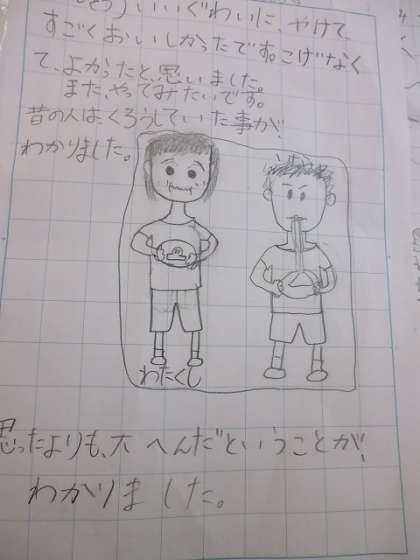 しょう)いいぐわいに、やけて、
すごくおいしかったです。こげなく
て、よかったと、思いました。
また、やってみたいです。
昔の人は、くろうしていた事が、
わかりました。
わたくし
思ったよりも、大へんだということが、
わかりました。